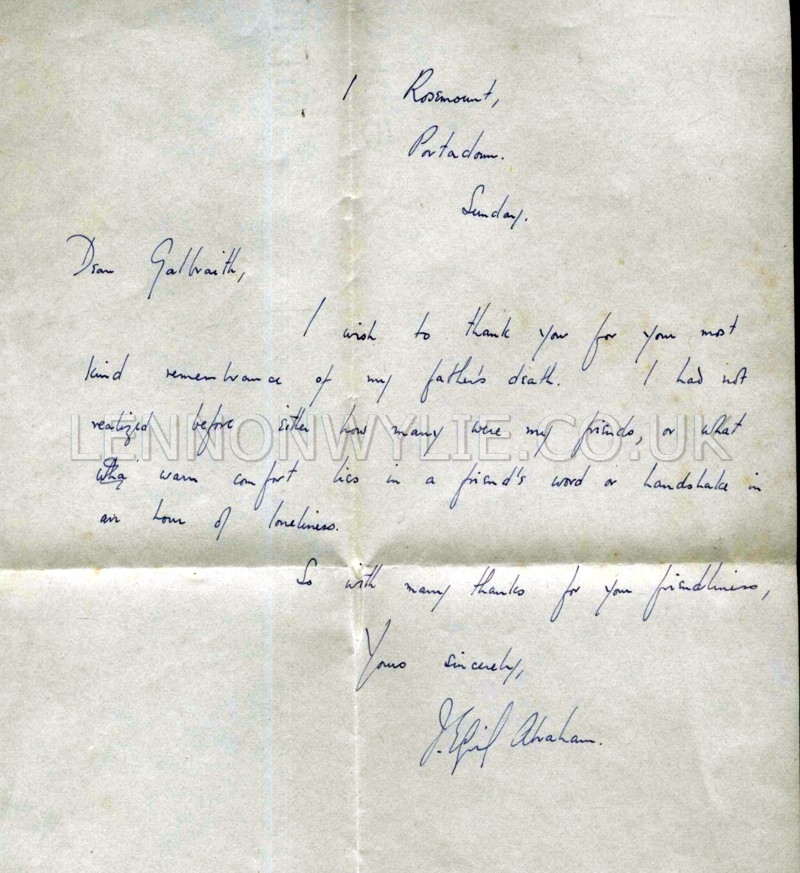 1 Rosemount,
Portadown.
Sunday.
Dear Galbraith,
I wish to thank you for your most
kind remembrance of my father's death. I had not
realized before either how many were my friends, or what
LENNONWYLIE.CO.UK
warm comfort lies in a friend's word or handshake in
an hour of loneliness.
So with many thanks for your friendliness,
Yours sincerely,
J. Abraham.